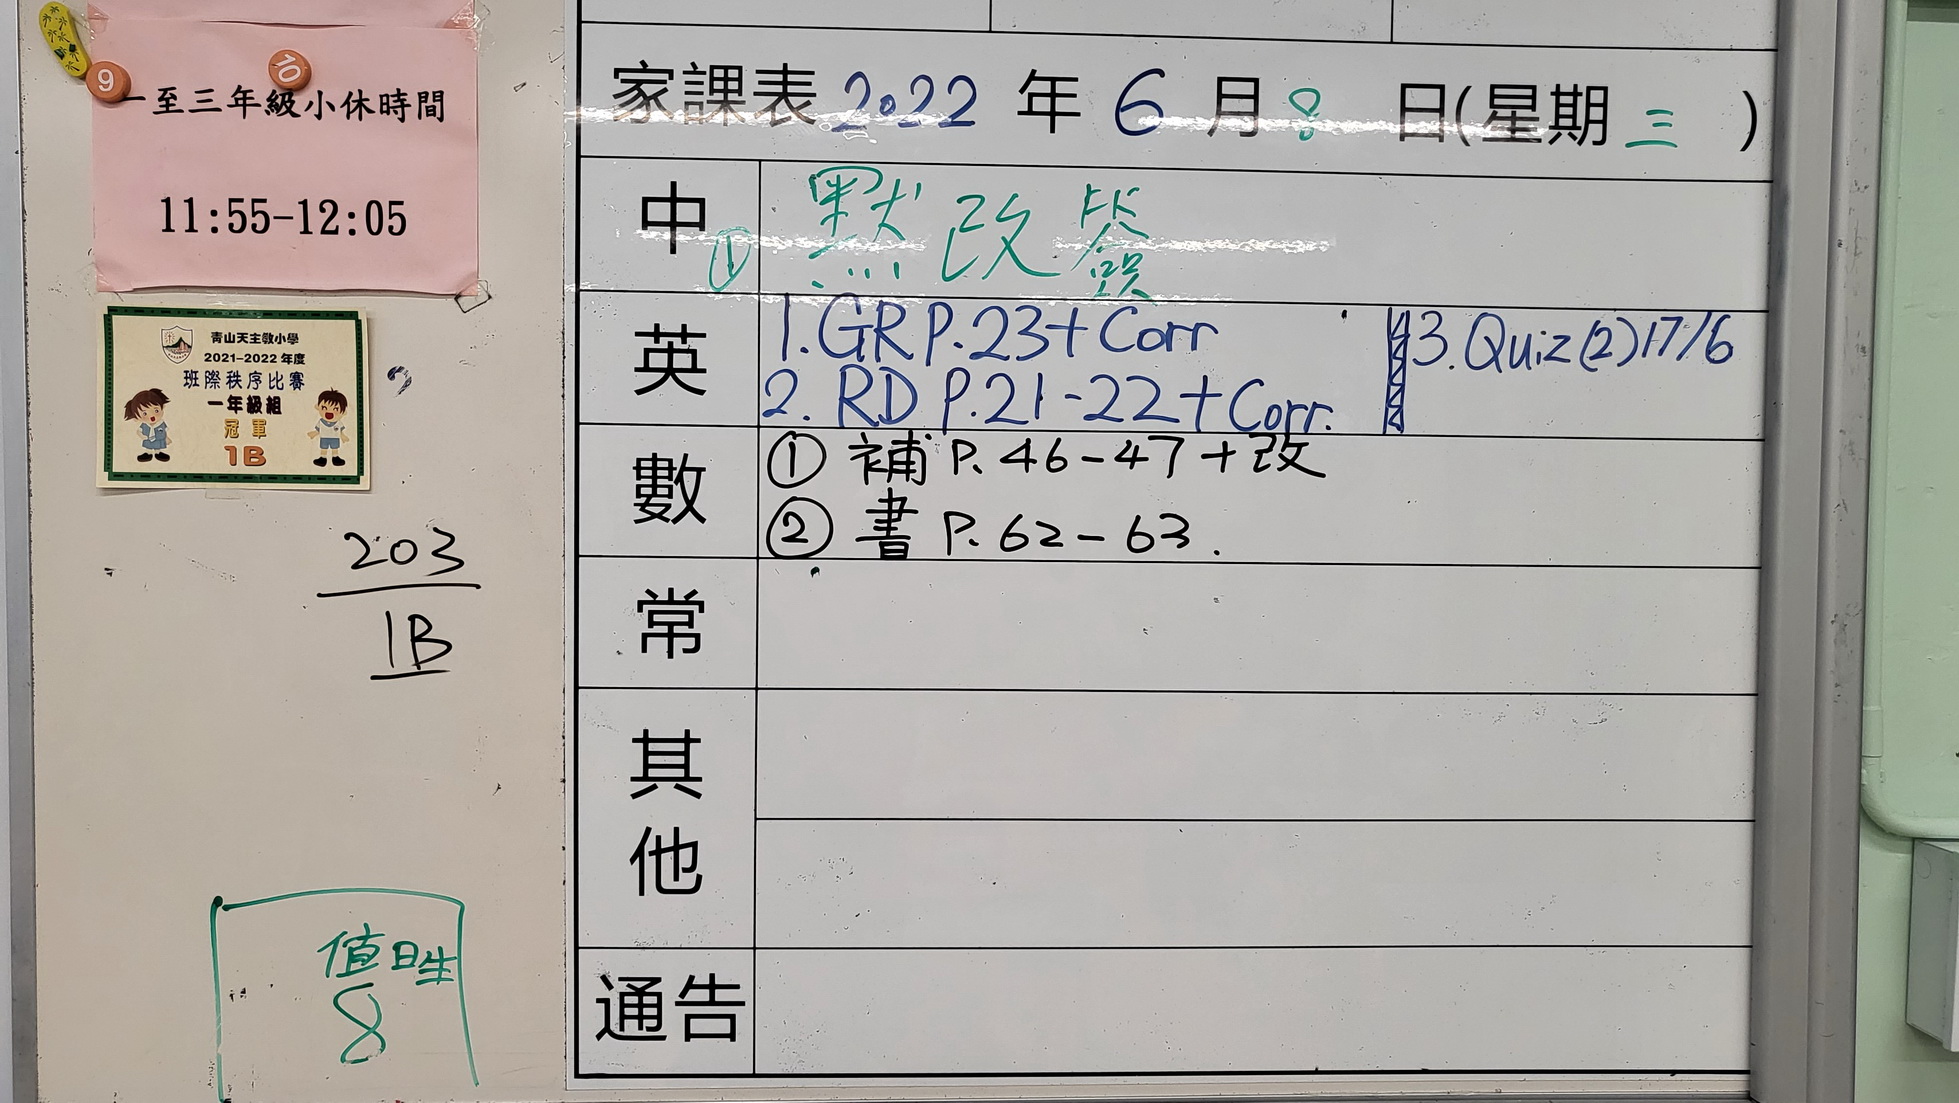 9
10
一至三年級小休時間
11:55-12:05
青山天主教小學
2021-2022 年度
班際秩序比賽
一年級組
冠軍
1B
203
1B
值日生
8
家課表 2022 年 6 月 8 日(星期 三 )
中 ① 默改簽
英
1. GR P.23+Corr
2. RD P.21-22+Corr.
3. Quiz(2)17/6
數
① 補 P. 46-47+改
② 書 P. 62-63.
常
其他
通告